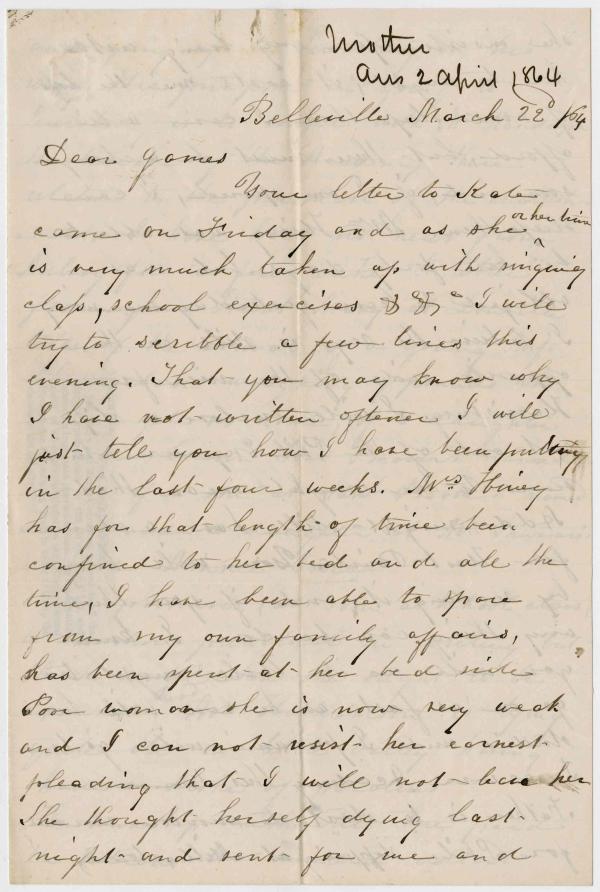 Mother
Ans 2 April 1864
Belleville March 22d /64
Dear James
Your letter to Kate
came on Friday and as she or her time
is very much taken up with singing
class, school exercises & &c I will
try to scribble a few lines this
evening. That you may know why
I have not written oftener I will
just tell you how I have been putting
in the last four weeks. Mrs
has for that length of time been
confined to her bed and all the
time, I have been able to spare
from my own family affairs,
has been spent at her bed side
Poor woman she is now very weak
and I can not resist her earnest
pleading that I will not leave her
She thought herself dying last
night and sent for me and